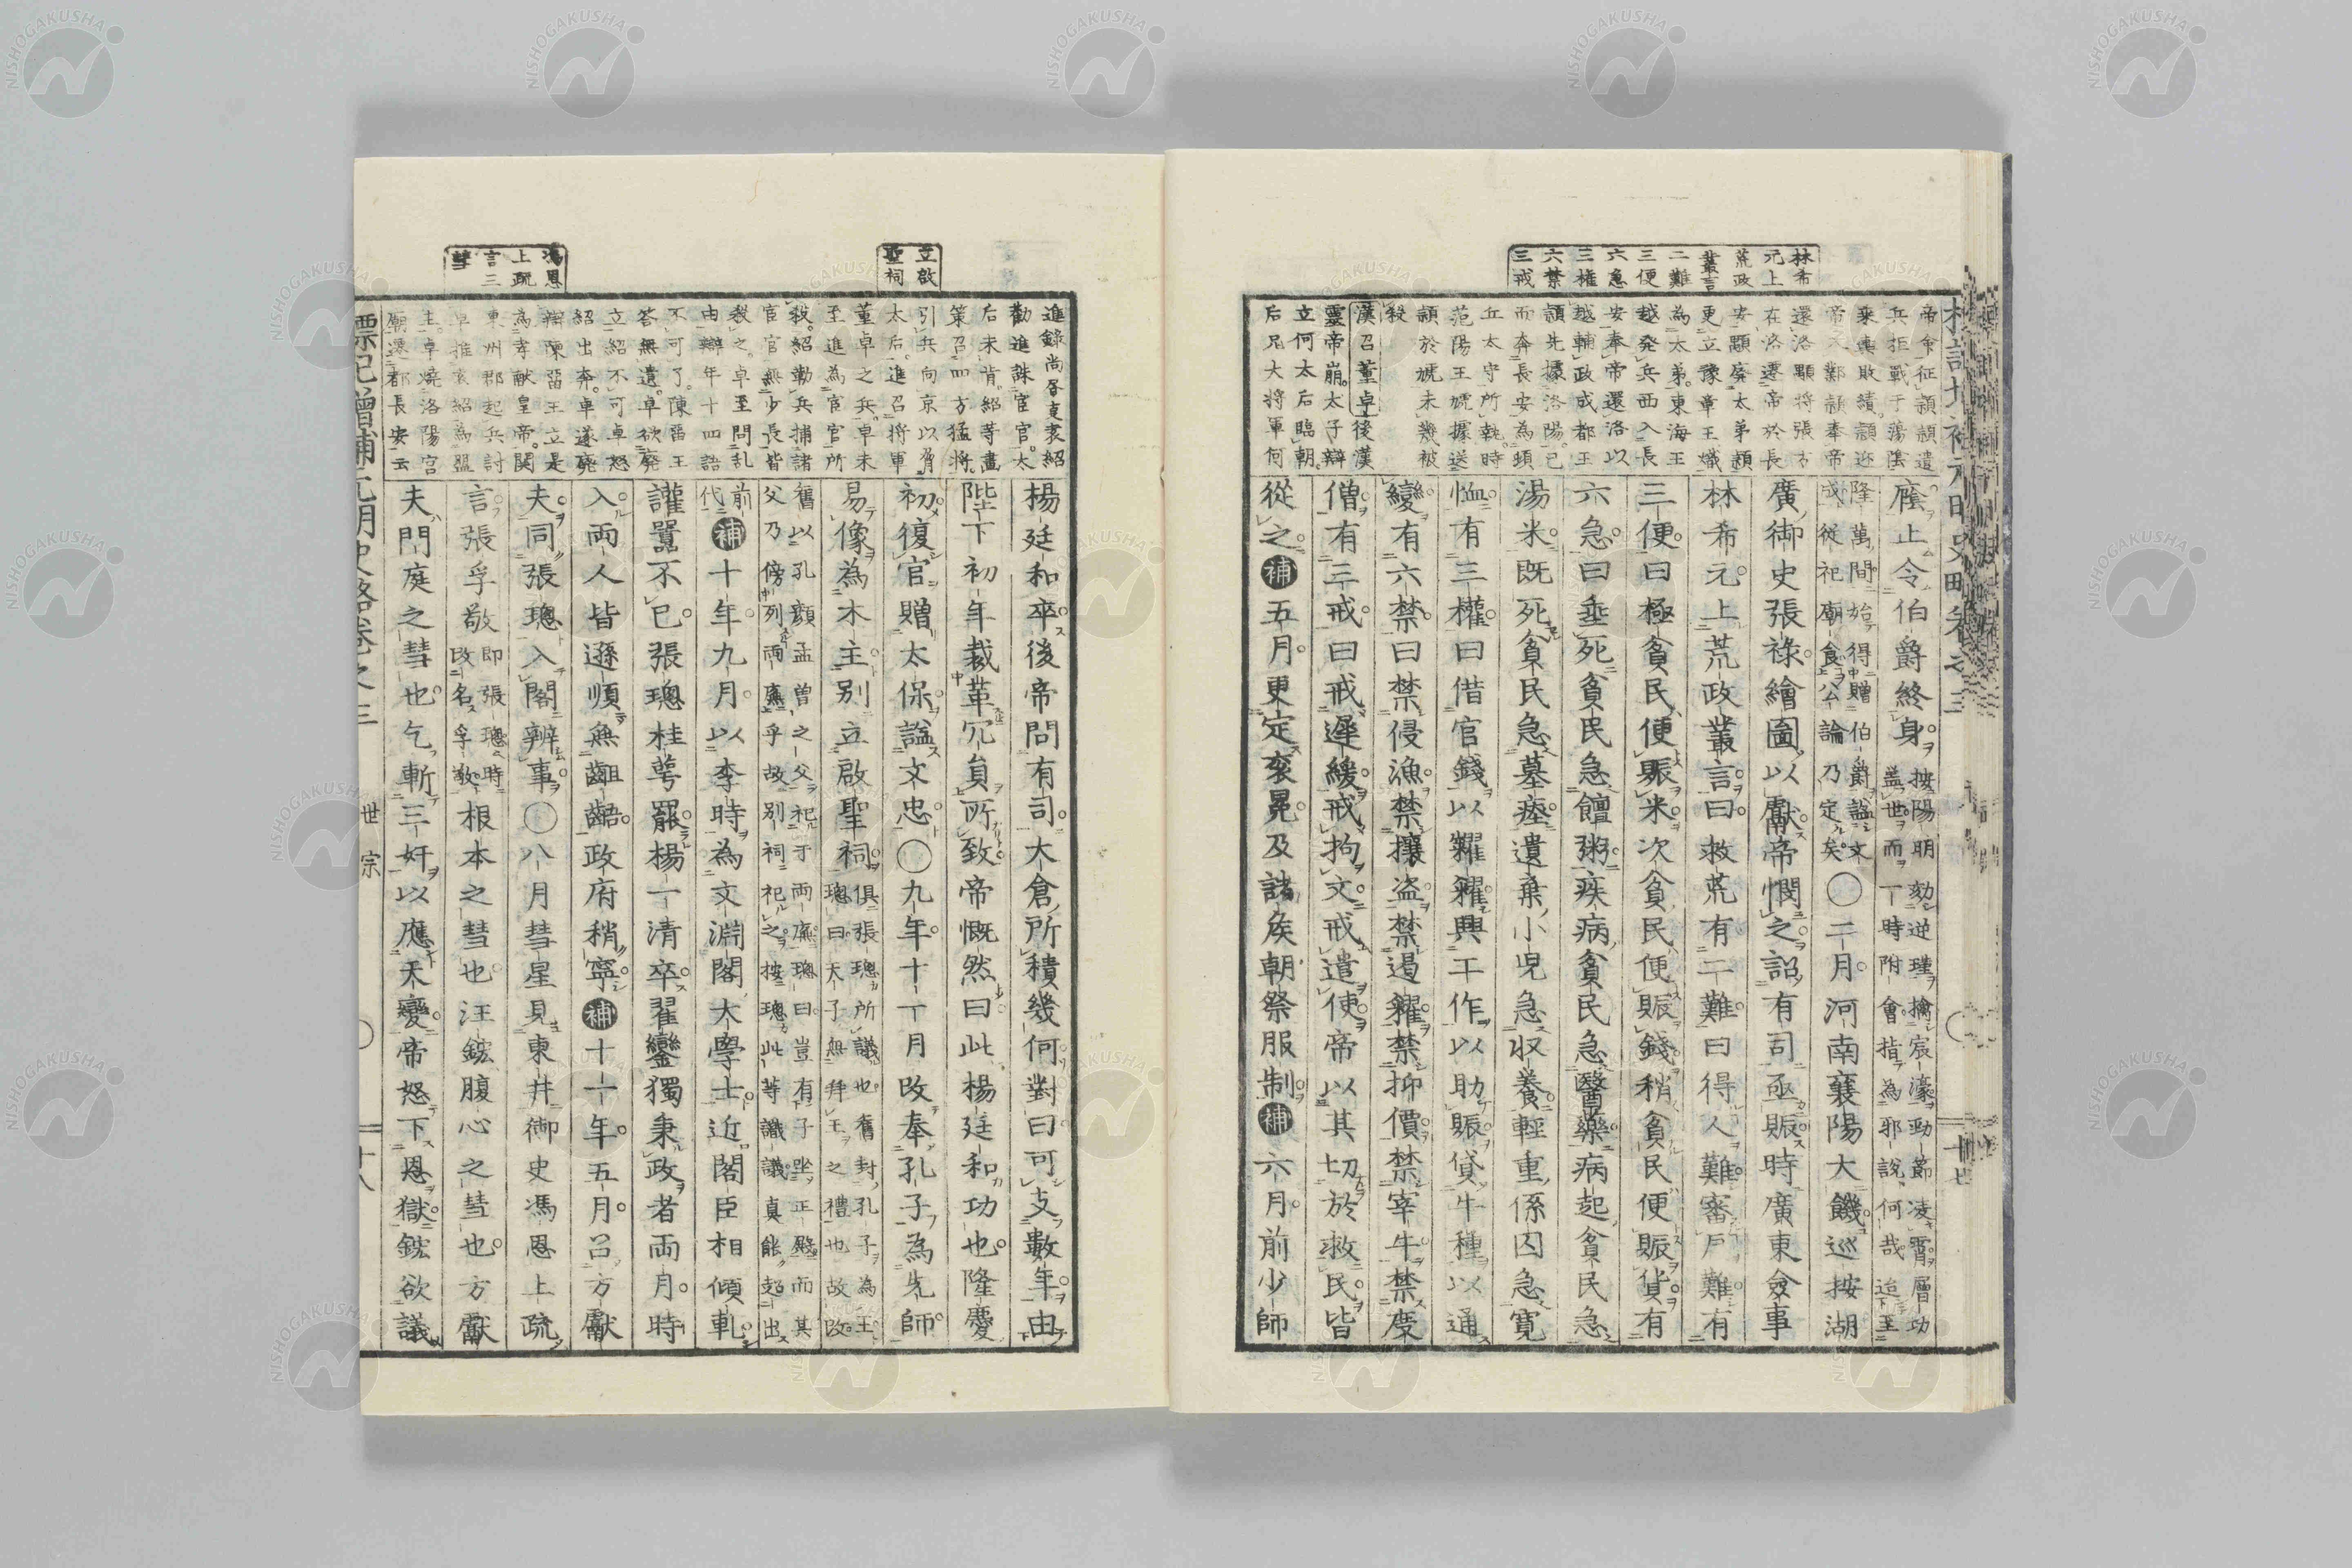 林希
元上
荒政
叢言
二難
三便
六急
三権
六禁
三戒
帝令征頴頴遣
兵拒戰于蕩陰
乘輿敗績頴迎
帝入鄴頴奉帝
還洛顒将張方
在洛遷帝於長
安顒廢太弟頴
更立豫章王熾
為太弟東海王
越発兵西入長
安奉帝還洛以
越輔政成都王
頴先據洛陽已
而奔長安為頓
丘太守所執時
范陽王虓據送
頴於虓未幾被
殺
漢召董卓後漢
靈帝崩太子辯
立何太后臨朝
后兄大将軍何
廕止令伯爵終身按陽明劾逆瑾擒宸濠勁節凌霄層功
蓋世而丁時附會指為邪説何哉迨至
隆萬間始得贈伯爵謚文
成従祀廟食公論乃定矣〇二月河南襄陽大饑巡按湖
廣御史張祿繪圖以獻帝憫之詔有司亟賑時廣東僉事
林希元上荒政叢言曰救荒有二難曰得人難審戸難有
三便曰極貧民便賑米次貧民便賑錢稍貧民便賑貸有
六急曰垂死貧民急饘粥疾病貧民急醫藥病起貧民急
湯米既死貧民急墓瘞遺棄小児急収養輕重係囚急寛
恤有三權曰借官錢以糶糴興工作以助賑貸牛種以通
變有六禁曰禁侵漁禁攘盗禁遏糴禁抑價禁宰牛禁度
僧有三戒曰戒遲緩戒拘文戒遣使帝以其切於救民皆
従之補五月更定衮冕及諸侯朝祭服制補六月前少師
立啟
聖祠
馮恩
上疏
言三
彗
進錄尚書事袁紹
勸進誅宦官太
后未肯紹等畫
策召四方猛将
引兵向京以脅
太后進召将軍
董卓之兵卓未
至進為宦官所
殺紹勒兵捕諸
宦官無少長皆
殺之卓至問乱
由辯年十四語
不可了陳畱王
答無遺卓欲廢
立紹不可卓怒
紹出奔卓遂廢
辯陳畱王立是
為孝献皇帝関
東州郡起兵討
卓推袁紹為盟
主卓燒洛陽宮
廟遷都長安云
楊廷和卒後帝問有司大倉所積幾何對曰可支數年由
陛下初年裁革冗員所致帝慨然曰此楊廷和功也隆慶
初復官贈太保謚文忠〇九年十一月改奉孔子為先師
易像為木主別立啟聖祠俱張璁所議也舊封孔子為王
璁曰天子無拜王之禮也故改
舊以孔顔孟曽之父祀于兩廡璁曰豈有子坐正殿而其
父乃傍列兩廡乎故別祠祀之按璁此等識議真能超出
前
代補十年九月以李時為文淵閣大學士近閣臣相傾軋
讙囂不已張璁桂萼罷楊一清卒翟鑾獨秉政者兩月時
入両人皆遜順無齟齬政府稍寧補十一年五月召方獻
夫同張璁入閣辨事〇八月彗星見東井御史馮恩上疏
言張孚敬即張璁時
改名孚敬根本之彗也汪鋐腹心之彗也方獻
夫門庭之彗也乞斬三奸以應天變帝怒下恩獄鋐欲議
標記増補元明史略巻之三　世宗　十八